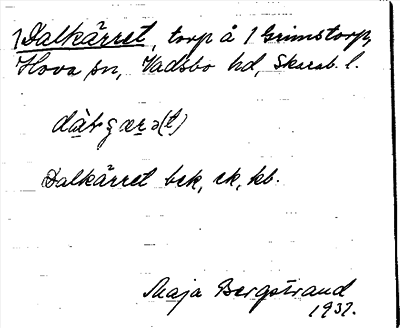 1 Dalkärret, torp å 1 Grimstorp,
Hova sn, Vadsbo hd, Skarab. l.
Dalkärret bck, ek, kb.
Maja Bergstrand
1932.